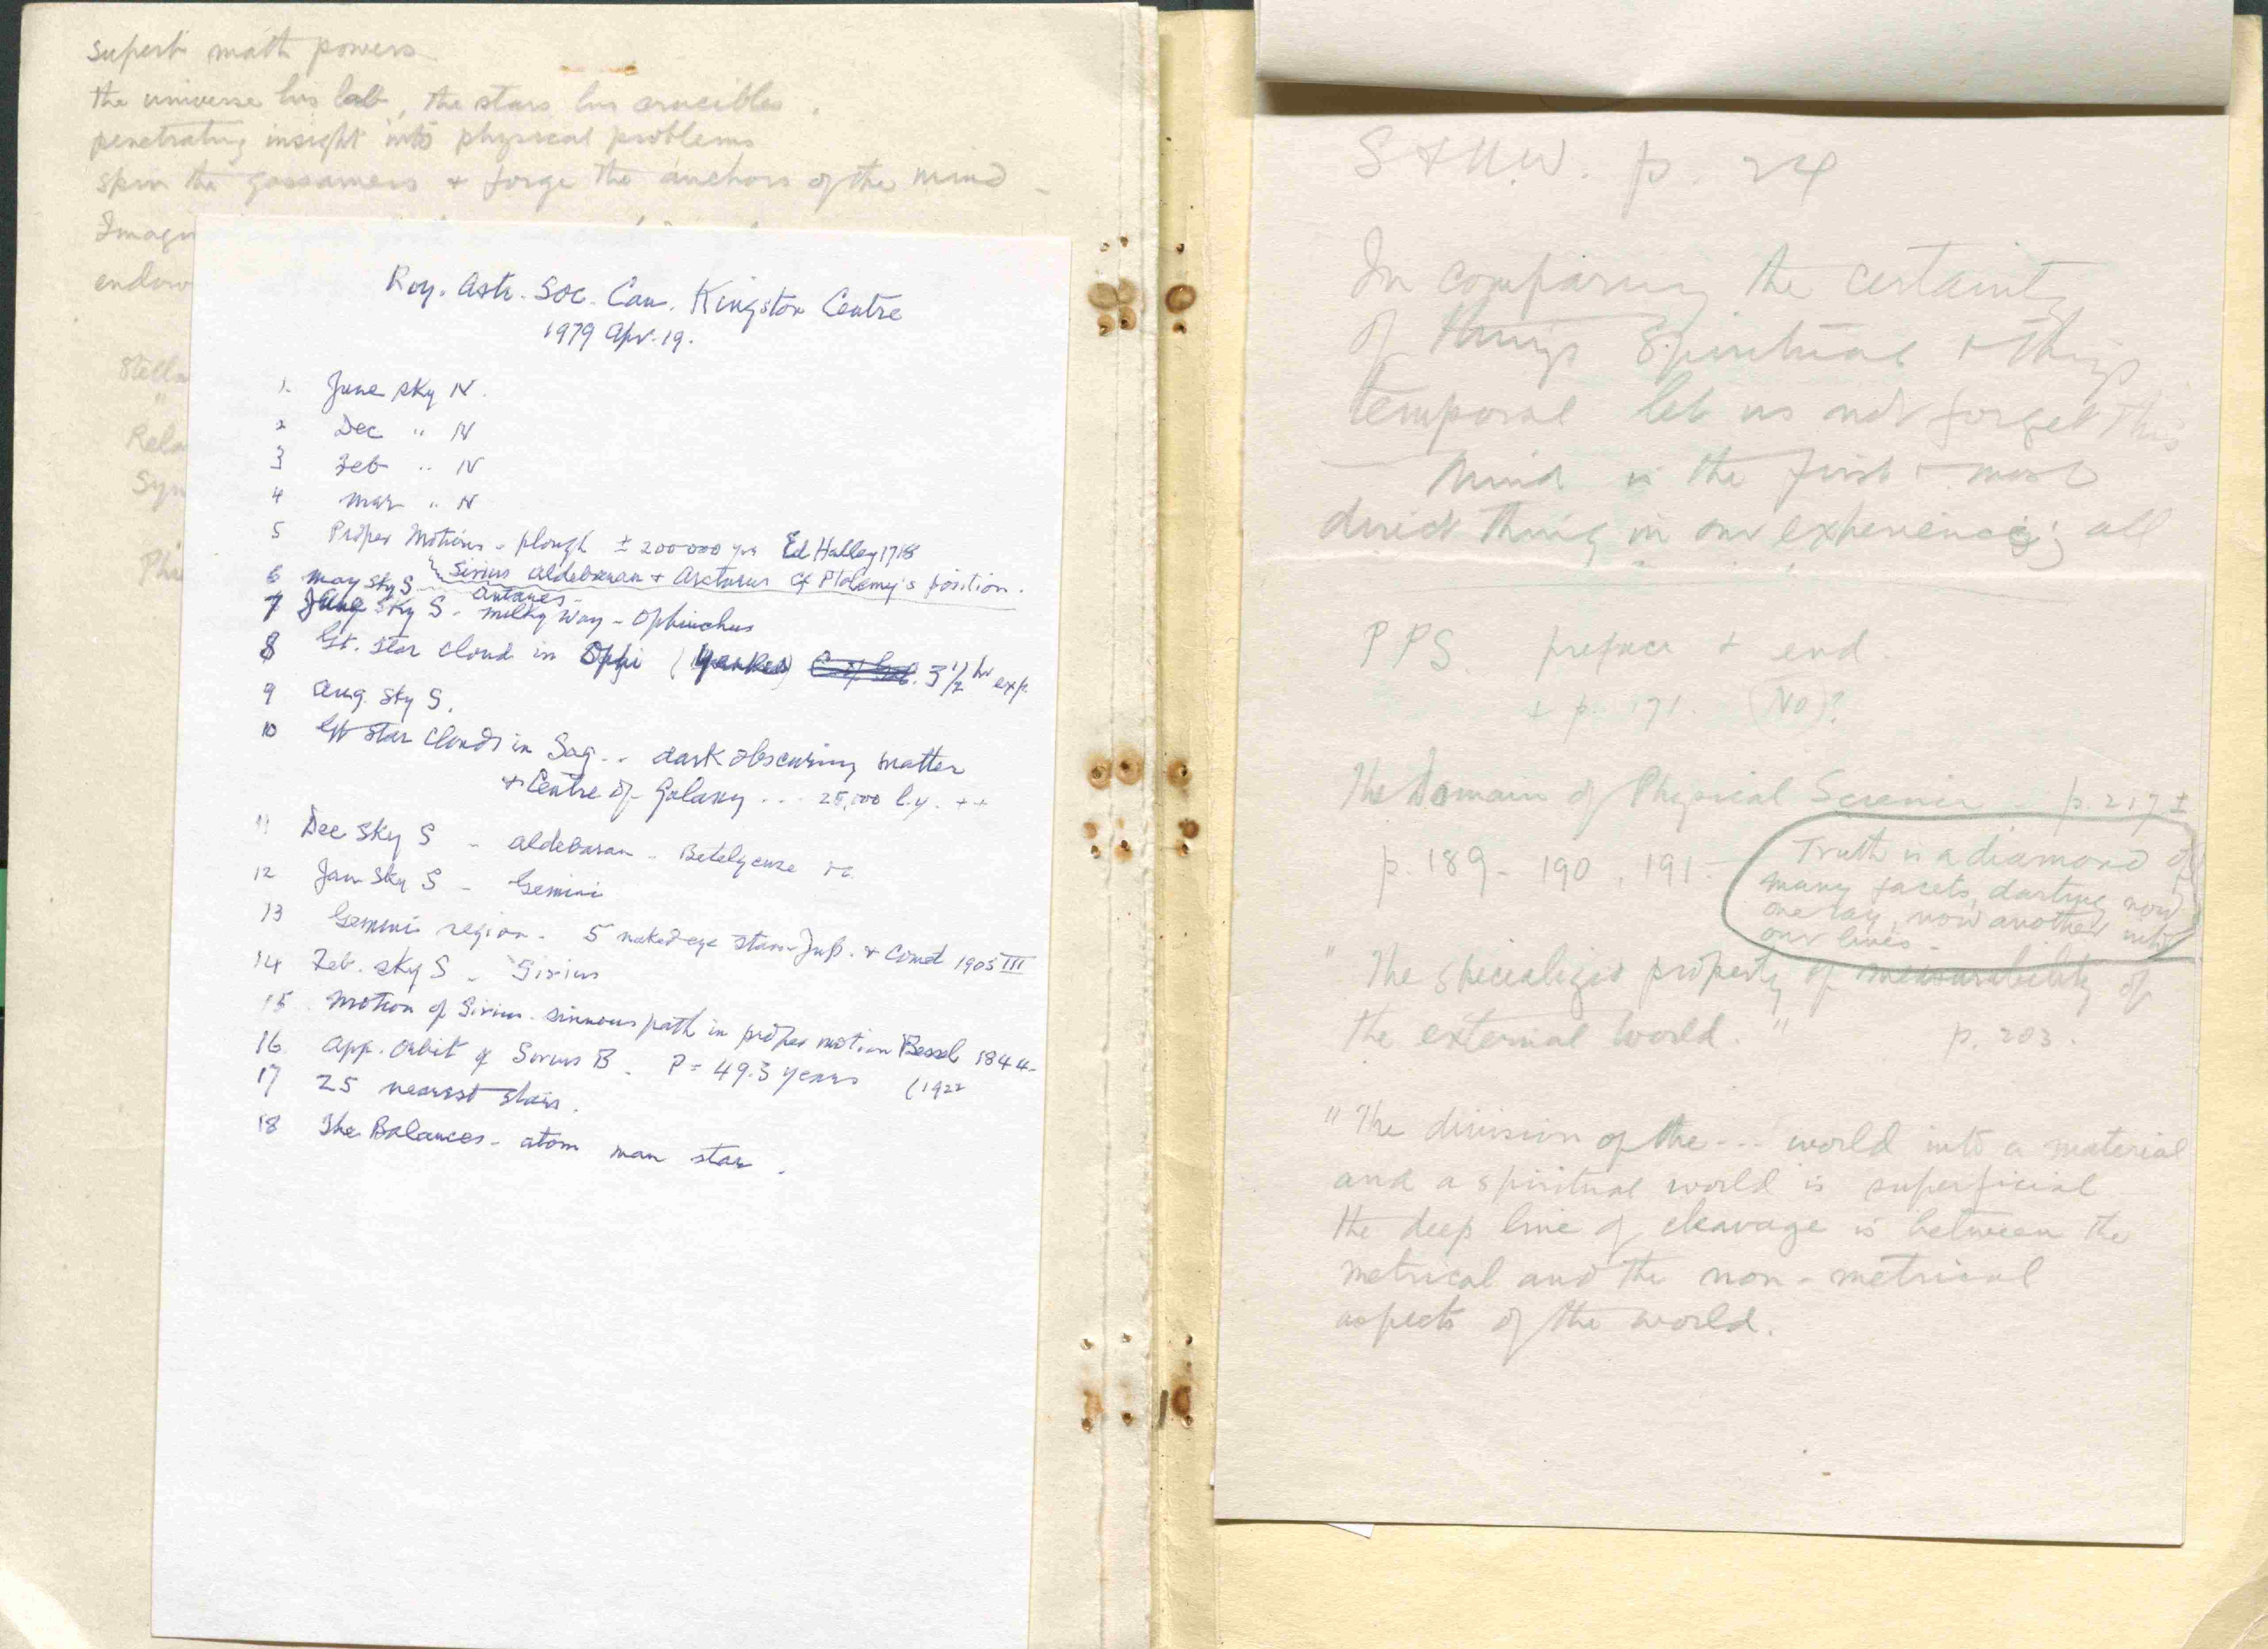 superb math powers
the universe his lab, the stars his crucibles.
penetrating insight into physical problems
spin the gossamers + forge the anchors of the mind -
Imagin
endow
Stella
"
Rela
Syn
Phi
Roy. Astr. Soc. Can. Kingston Centre
1979 Apr. 19.
1. June sky N.
2 Dec " N
3 Feb " N
4 Mar " N
5 Proper Motions - plough ± 200000 yrs Ed Halley 1718
Sirius Aldebaran + Arcturus cf Ptolemy's position.
6 May sky S - Antares -
7 Aug Sky S - milky way - Ophiuchus
8 Gt. Star Cloud in Ophi (Yerkes) 3 1/2 hr exp.
9 Aug. Sky S.
10 Gt Star Clouds in Sag. - dark obscuring matter
+ Centre of Galaxy . . . 25,000 l.y. ++
11 Dec Sky S - Aldebaran - Betelgeuse
12 Jan Sky S - Gemini
13 Gemini region - 5 naked eye stars - Jup. + Comet 1905 III
14 Feb. sky S - Sirius
15 Motion of Sirius - sinuous path in proper motion Bessel 1844 -
16 App. Orbit of Sirius B - P = 49.3 years (1922
17 25 nearest stars.
18 The Balances - atom man star.
S & U.W. p. 24
In comparing the certainty
of things Spiritual + things
temporal let us not forget this
— Mind is the first + most
direct thing in our experience; all
PPS preface + end.
+ p. 171. (No)?
The Domain of Physical Science - p. 217 ±
p. 189 - 190, 191 -
Truth is a diamond of
many facets, darting now
one ray, now another into
our lives -
"The specialized property of mensurability of
the external world." p. 203.
"The division of the --- world into a material
and a spiritual world is superficial
the deep line of cleavage is between the
metrical and the non-metrical
aspects of the world.